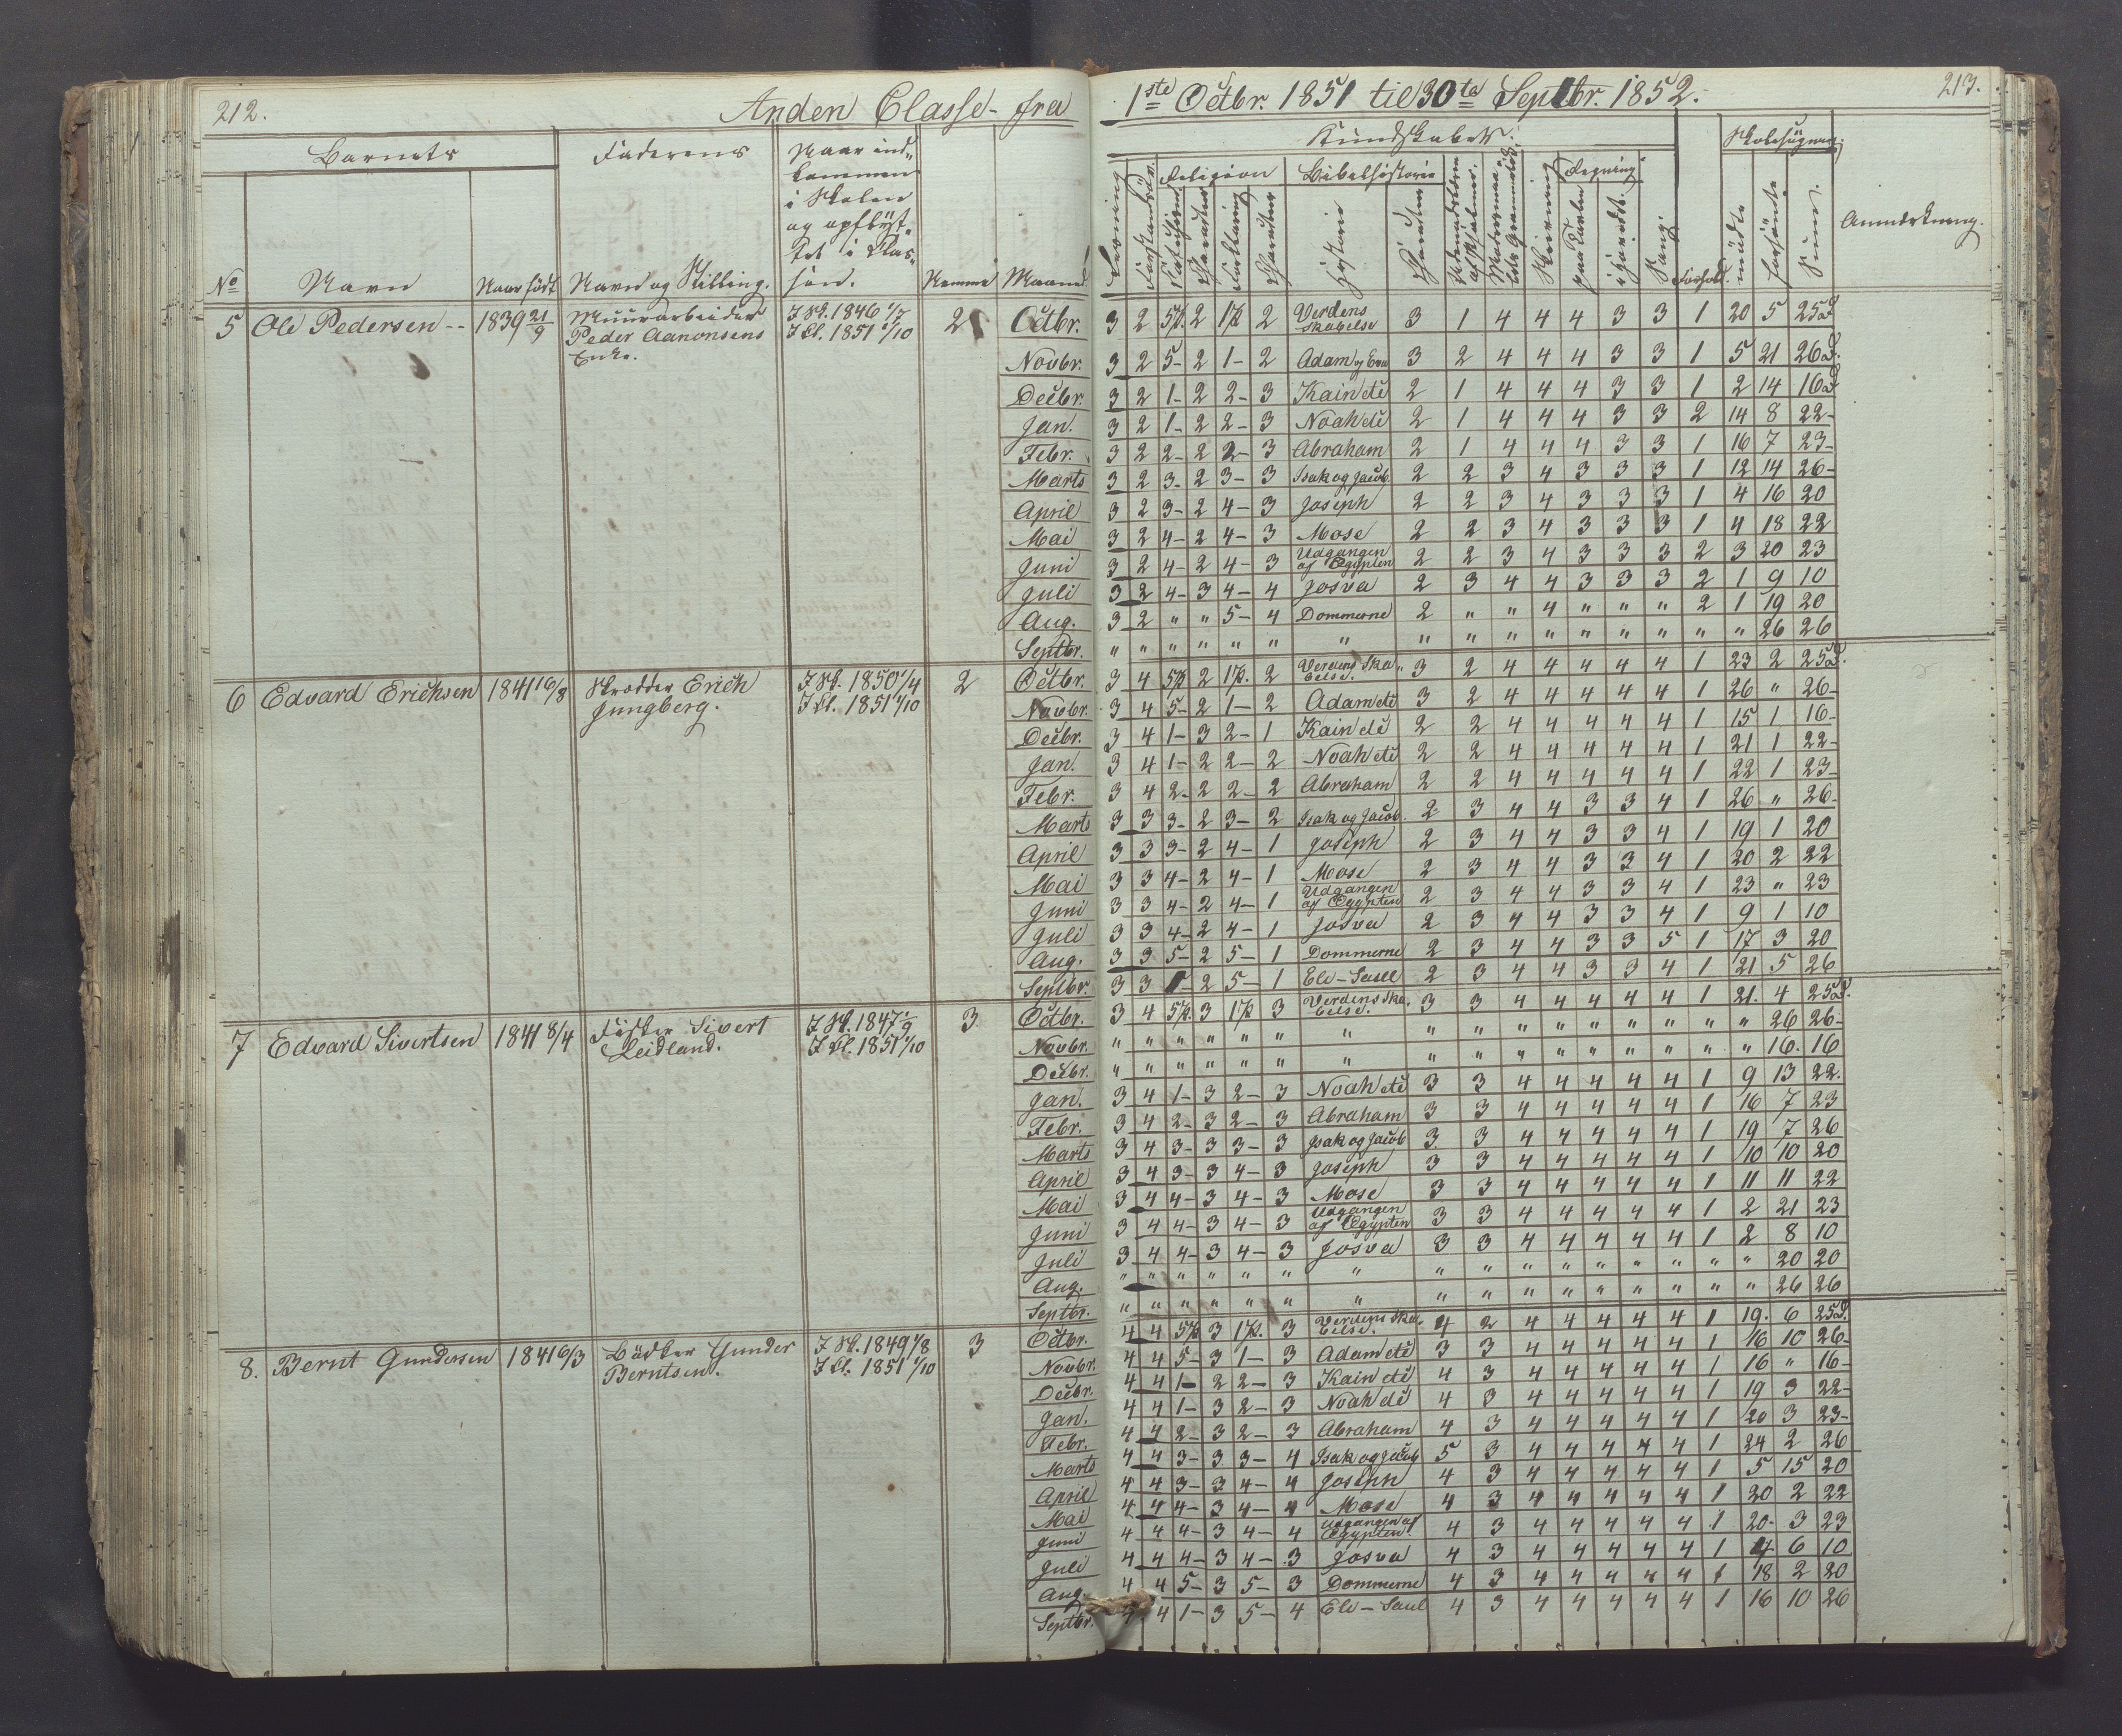 212.
Anden Classe - fra
1ste Octbr. 1851 til 30te Septbr. 1852.
213.
Barnets
Faderens
Naar ind-
kommen
i Skolen
og opflyt-
tet i Clas-
sen.
No
Navn
Naar født
Navn og Stilling.
Nemme
Maaned
Kundskaber.
Skolesøgning.
Religion
Bibelhistorie
Regning
Historie
Sang
Forhold.
mødte
forsømte
Sum.
Anmærkning.
5 Ole Pedersen -- 1839 21/9 Muurarbeider I Sk. 1846 1/7 2 Octbr. 3 2 5p. 2 1p 2 Verdens Skabelse 3 1 4 4 4 3 3 1 20 5 25D
Peder Aanonsens I Cl. 1851 1/10
Enke.
Novbr. 3 2 5- 2 1- 2 Adam og Eva 3 2 4 4 4 3 3 1 5 21 26D.
Decbr. 3 2 1- 2 2- 3 Kain etc 2 1 4 4 4 3 3 1 2 14 16D
Jan. 3 2 1- 2 2- 3 Noah etc 2 1 4 4 4 3 3 2 14 8 22-
Febr. 3 2 2- 2 2- 3 Abraham 2 1 4 4 4 3 3 1 16 7 23-
Marts 3 2 3- 2 3- 3 Isak og Jacob. 2 2 3 4 3 3 3 1 12 14 26-
April 3 2 3- 2 4- 3 Joseph 2 2 3 4 3 3 3 1 4 16 20
Mai 3 2 4- 2 4- 3 Mose 2 2 3 4 3 3 3 1 4 18 22
Juni 3 2 4- 2 4- 3 Udgangen af Ægypten 2 2 3 4 3 3 3 2 3 20 23
Juli 3 2 4- 3 4- 4 Josva 2 3 4 4 3 3 3 2 1 9 10
Aug. 3 2 " " 5- 4 Dommerne 2 " " 4 " " " 2 1 19 20
Septbr. " " " " " " " " " " " " " " " " 26 26
6 Edvard Erichsen 1841 16/8 Skrædder Erich I Sk. 1850 1/4 2 Octbr. 3 4 5p 2 1p. 2 Verdens Skabelse. 3 2 4 4 4 4 4 1 23 2 25D.
Jungberg. I Cl. 1851 1/10
Novbr. 3 4 5- 2 1- 2 Adam etc 3 2 4 4 4 4 4 1 26 " 26-
Decbr. 3 4 1- 3 2- 1 Kain etc 2 2 4 4 4 4 4 1 15 1 16-
Jan. 3 4 1- 2 2- 2 Noah etc 2 2 4 4 4 4 4 1 21 1 22-
Febr. 3 4 2- 2 2- 2 Abraham 2 2 4 4 4 4 4 1 22 1 23-
Marts 3 3 3- 2 3- 2 Isak og Jacob. 2 3 4 4 3 3 4 1 26 " 26-
April 3 3 3- 2 4- 1 Joseph 2 3 4 4 3 3 4 1 19 1 20
Mai 3 3 4- 2 4- 1 Mose 2 3 4 4 3 3 4 1 20 2 22
Juni 3 3 4- 2 4- 1 Udgangen af Ægypten 2 3 4 4 3 3 4 1 23 " 23
Juli 3 3 4- 2 4- 1 Josva 2 3 4 4 3 3 4 1 9 1 10
Aug. 3 3 5- 2 5- 1 Dommerne 2 3 4 4 3 3 5 1 17 3 20
Septbr. 3 3 1- 2 5- 1 Eli - Saul 2 3 4 4 3 3 4 1 21 5 26
7 Edvard Sivertsen 1841 8/4 Fisker Sivert I Sk. 1847 1/9 3 Octbr. 3 4 5p. 3 1p 3 Verdens Skabelse. 3 3 4 4 4 4 4 1 21. 4 25D.
Leidland. I Cl. 1851 1/10
Novbr. " " " " " " " " " " " " " " " " 26 26-
Decbr. " " " " " " " " " " " " " " " " 16. 16
Jan. 3 4 1- 3 2- 3 Noah etc 3 3 4 4 4 4 4 1 9 13 22.
Febr. 3 4 2- 3 2- 3 Abraham 3 3 4 4 4 4 4 1 16 7 23
Marts 3 4 3- 3 3- 3 Isak og Jacob 3 3 4 4 4 4 4 1 19 7 26
April 3 4 3- 3 4- 3 Joseph 3 3 4 4 4 4 4 1 10 10 20
Mai 3 4 4- 3 4- 3 Mose 3 3 4 4 4 4 4 1 11 11 22
Juni 3 4 4- 3 4- 3 Udgangen af Ægypten 3 3 4 4 4 4 4 1 2 21 23
Juli 3 4 4- 3 4- 3 Josva 3 3 4 4 4 4 4 1 2 8 10
Aug. " " " " " " " " " " " " " " " " 20 20
Septbr. " " " " " " " " " " " " " " " " 26 26
8. Bernt Gundersen 1841 6/3 Bødker Gunder I Sk. 1849 1/8 3 Octbr. 4 4 5p 3 1p. 3 Verdens Skabelse. 4 2 4 4 4 4 4 1 19. 6 25D.
Berntsen. I Cl. 1851 1/10
Novbr. 4 4 5- 3 1- 3 Adam etc 3 3 4 4 4 4 4 1 16 10 26-
Decbr. 4 4 1- 2 2- 3 Kain etc 4 3 4 4 4 4 4 1 16 " 16-
Jan. 4 4 1- 3 2- 3 Noah etc 4 3 4 4 4 4 4 1 19 3 22-
Febr. 4 4 2- 3 2- 3 Abraham 4 3 4 4 4 4 4 1 20 3 23-
Marts 4 4 3- 3 3- 4 Isak og Jacob 5 3 4 4 4 4 4 1 24 2 26
April 4 4 3- 3 4- 4 Joseph 4 3 4 4 4 4 4 1 5 15 20
Mai 4 4 4- 3 4- 4 Mose 4 3 4 4 4 4 4 1 20 2 22
Juni 4 4 4- 3 4- 4 Udgangen af Ægypten 4 3 4 4 4 4 4 1 20- 3 23
Juli 4 4 4- 3 4- 3 Josva 4 3 4 4 4 4 4 1 4 6 10
Aug. 4 4 5- 3 5- 3 Dommerne 4 3 4 4 4 4 4 1 18 2 20
Septbr. 4 4 1- 3 5- 4 Eli - Saul 4 3 4 4 4 4 4 1 16 10 26